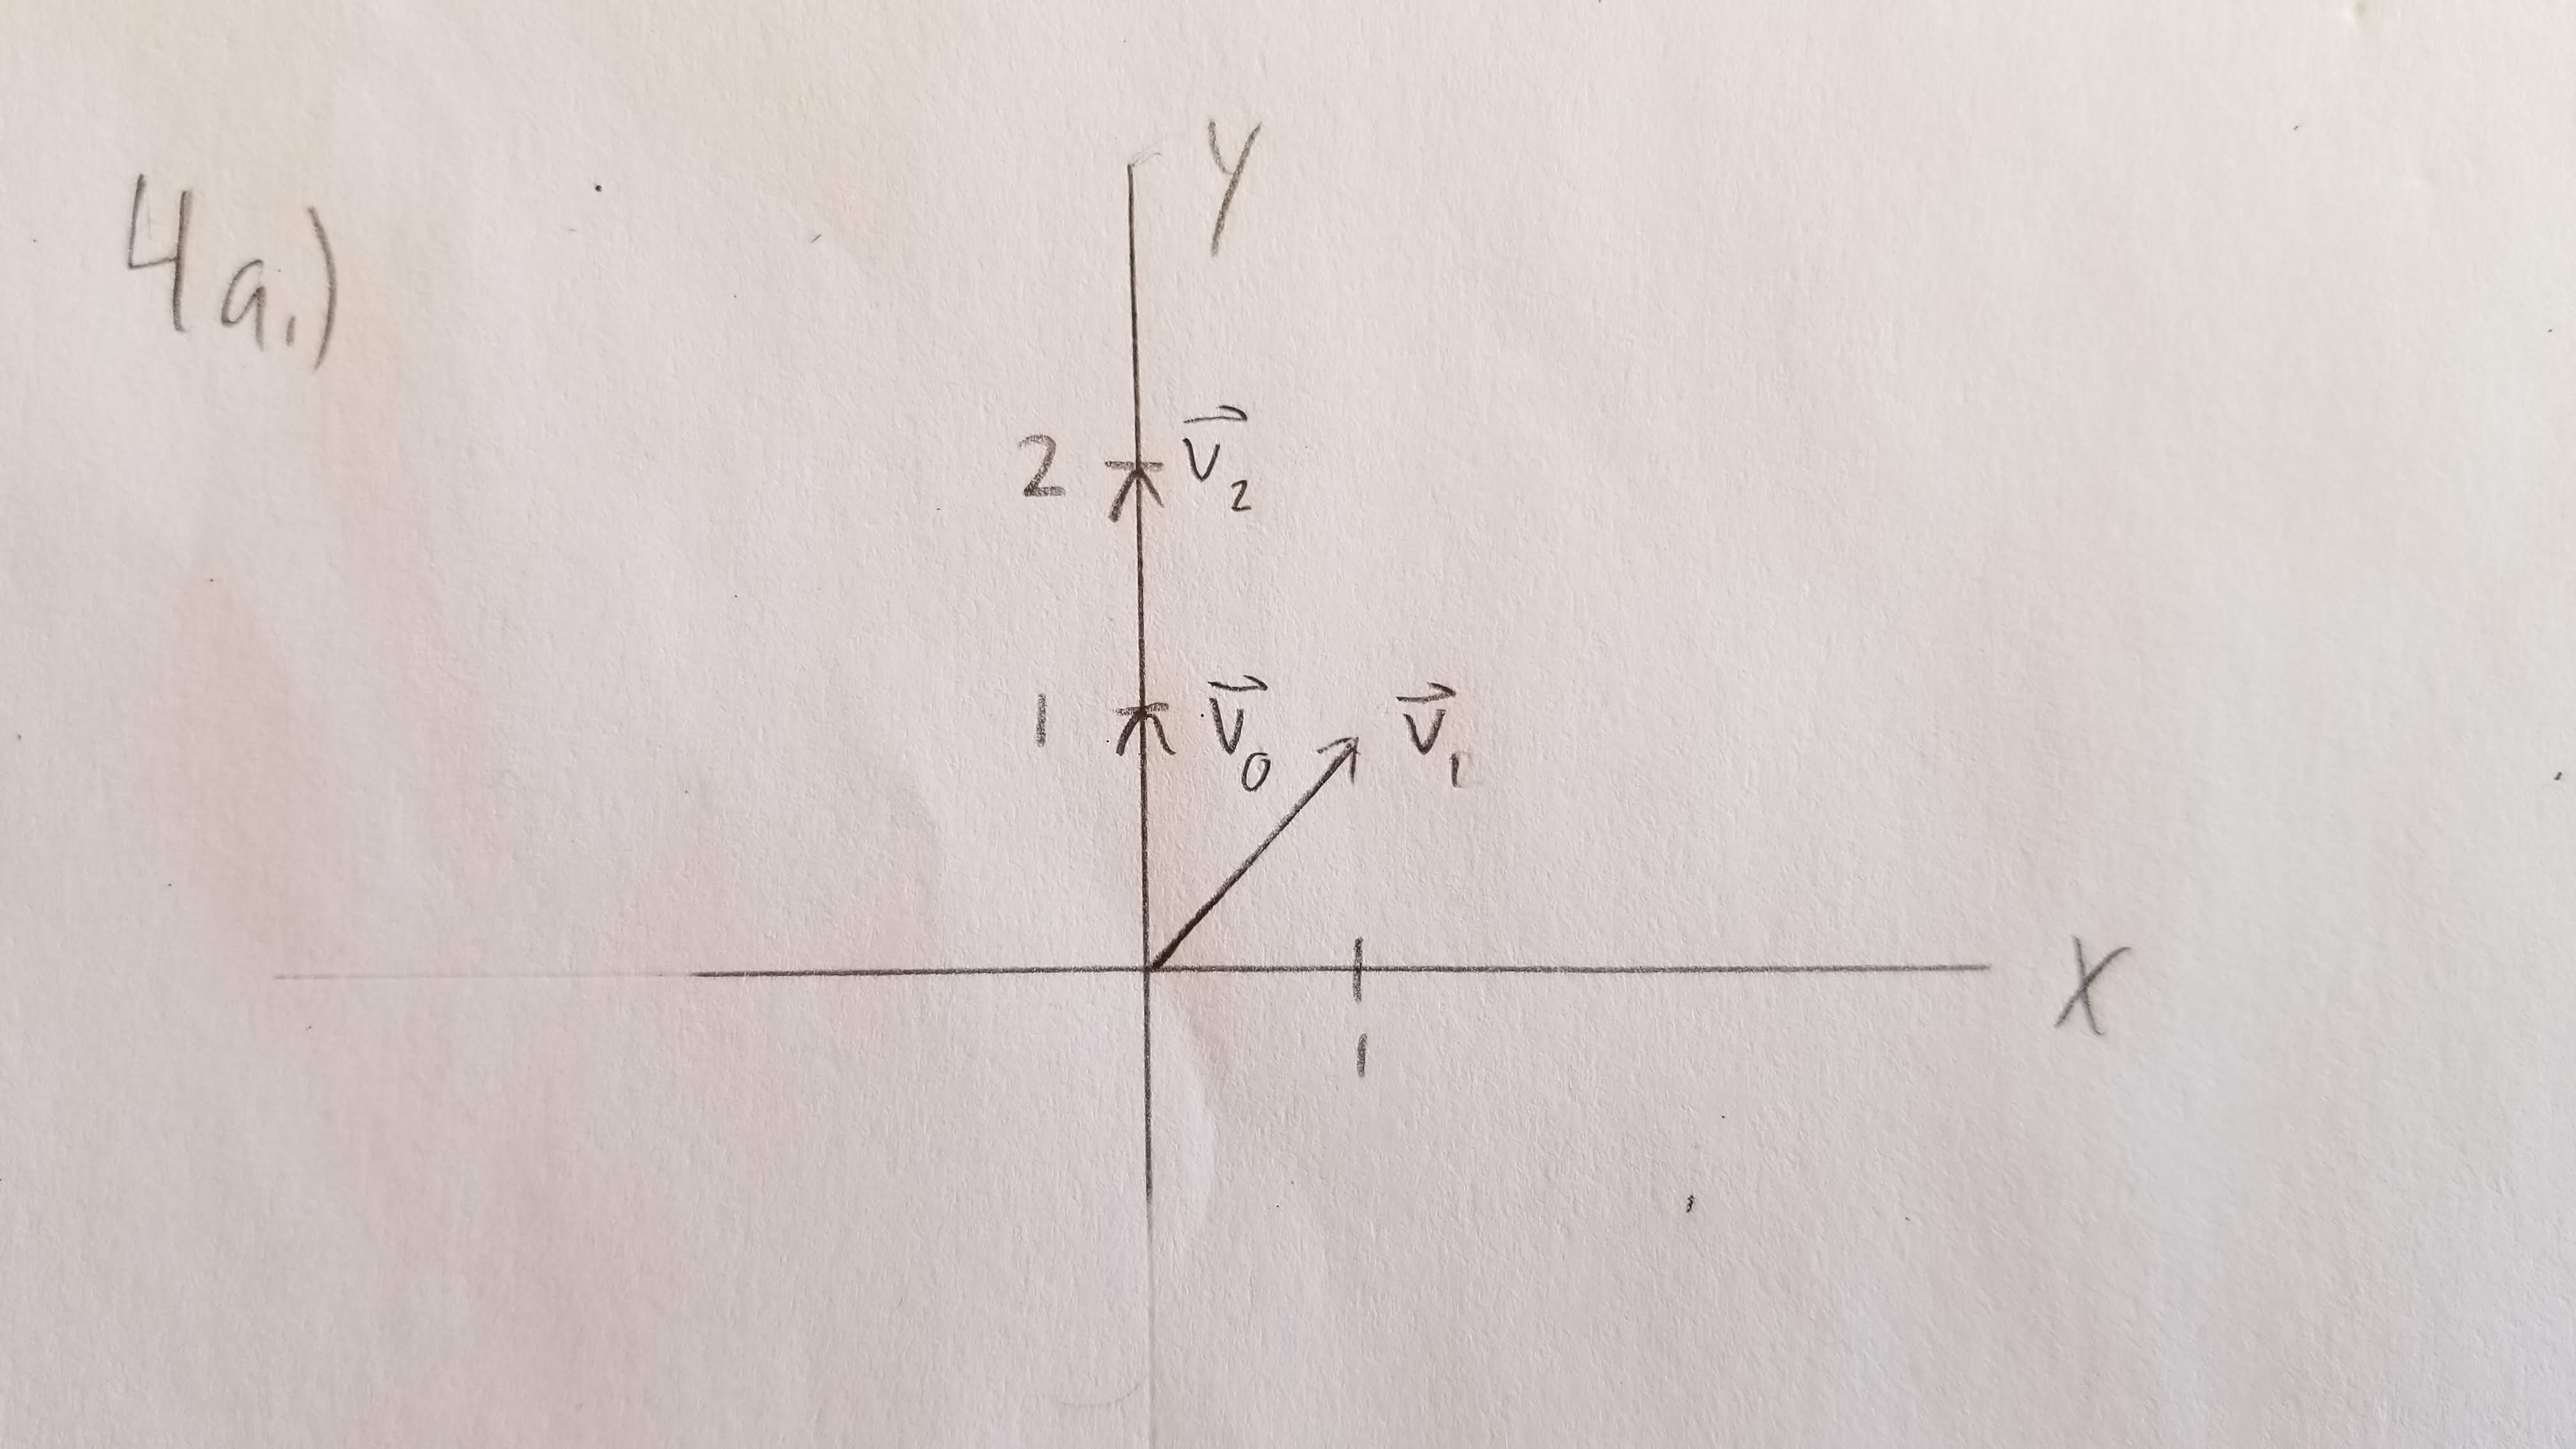 4a.)
Y
2 v⃗₂
1 v⃗₀ v⃗₁
X
1